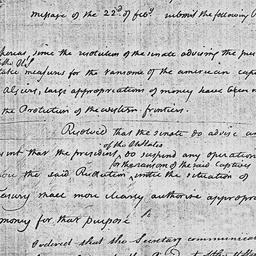 message of the 22d of feby submit the following
whereas since the resolution of the senate advising the pres
of the US
take measures for the ransome of the american cap
Algiers, large appropriations of money have been m
the Protection of the western frontiers.
Resolved that the senate do advise an
of the US States
ent that the president do suspend any operation
for the ransom of the said captives
the said Resolution, untill the situation of
easury shall more clearly authorise appropri
money for that purpose
Ordered that the Secretary communica